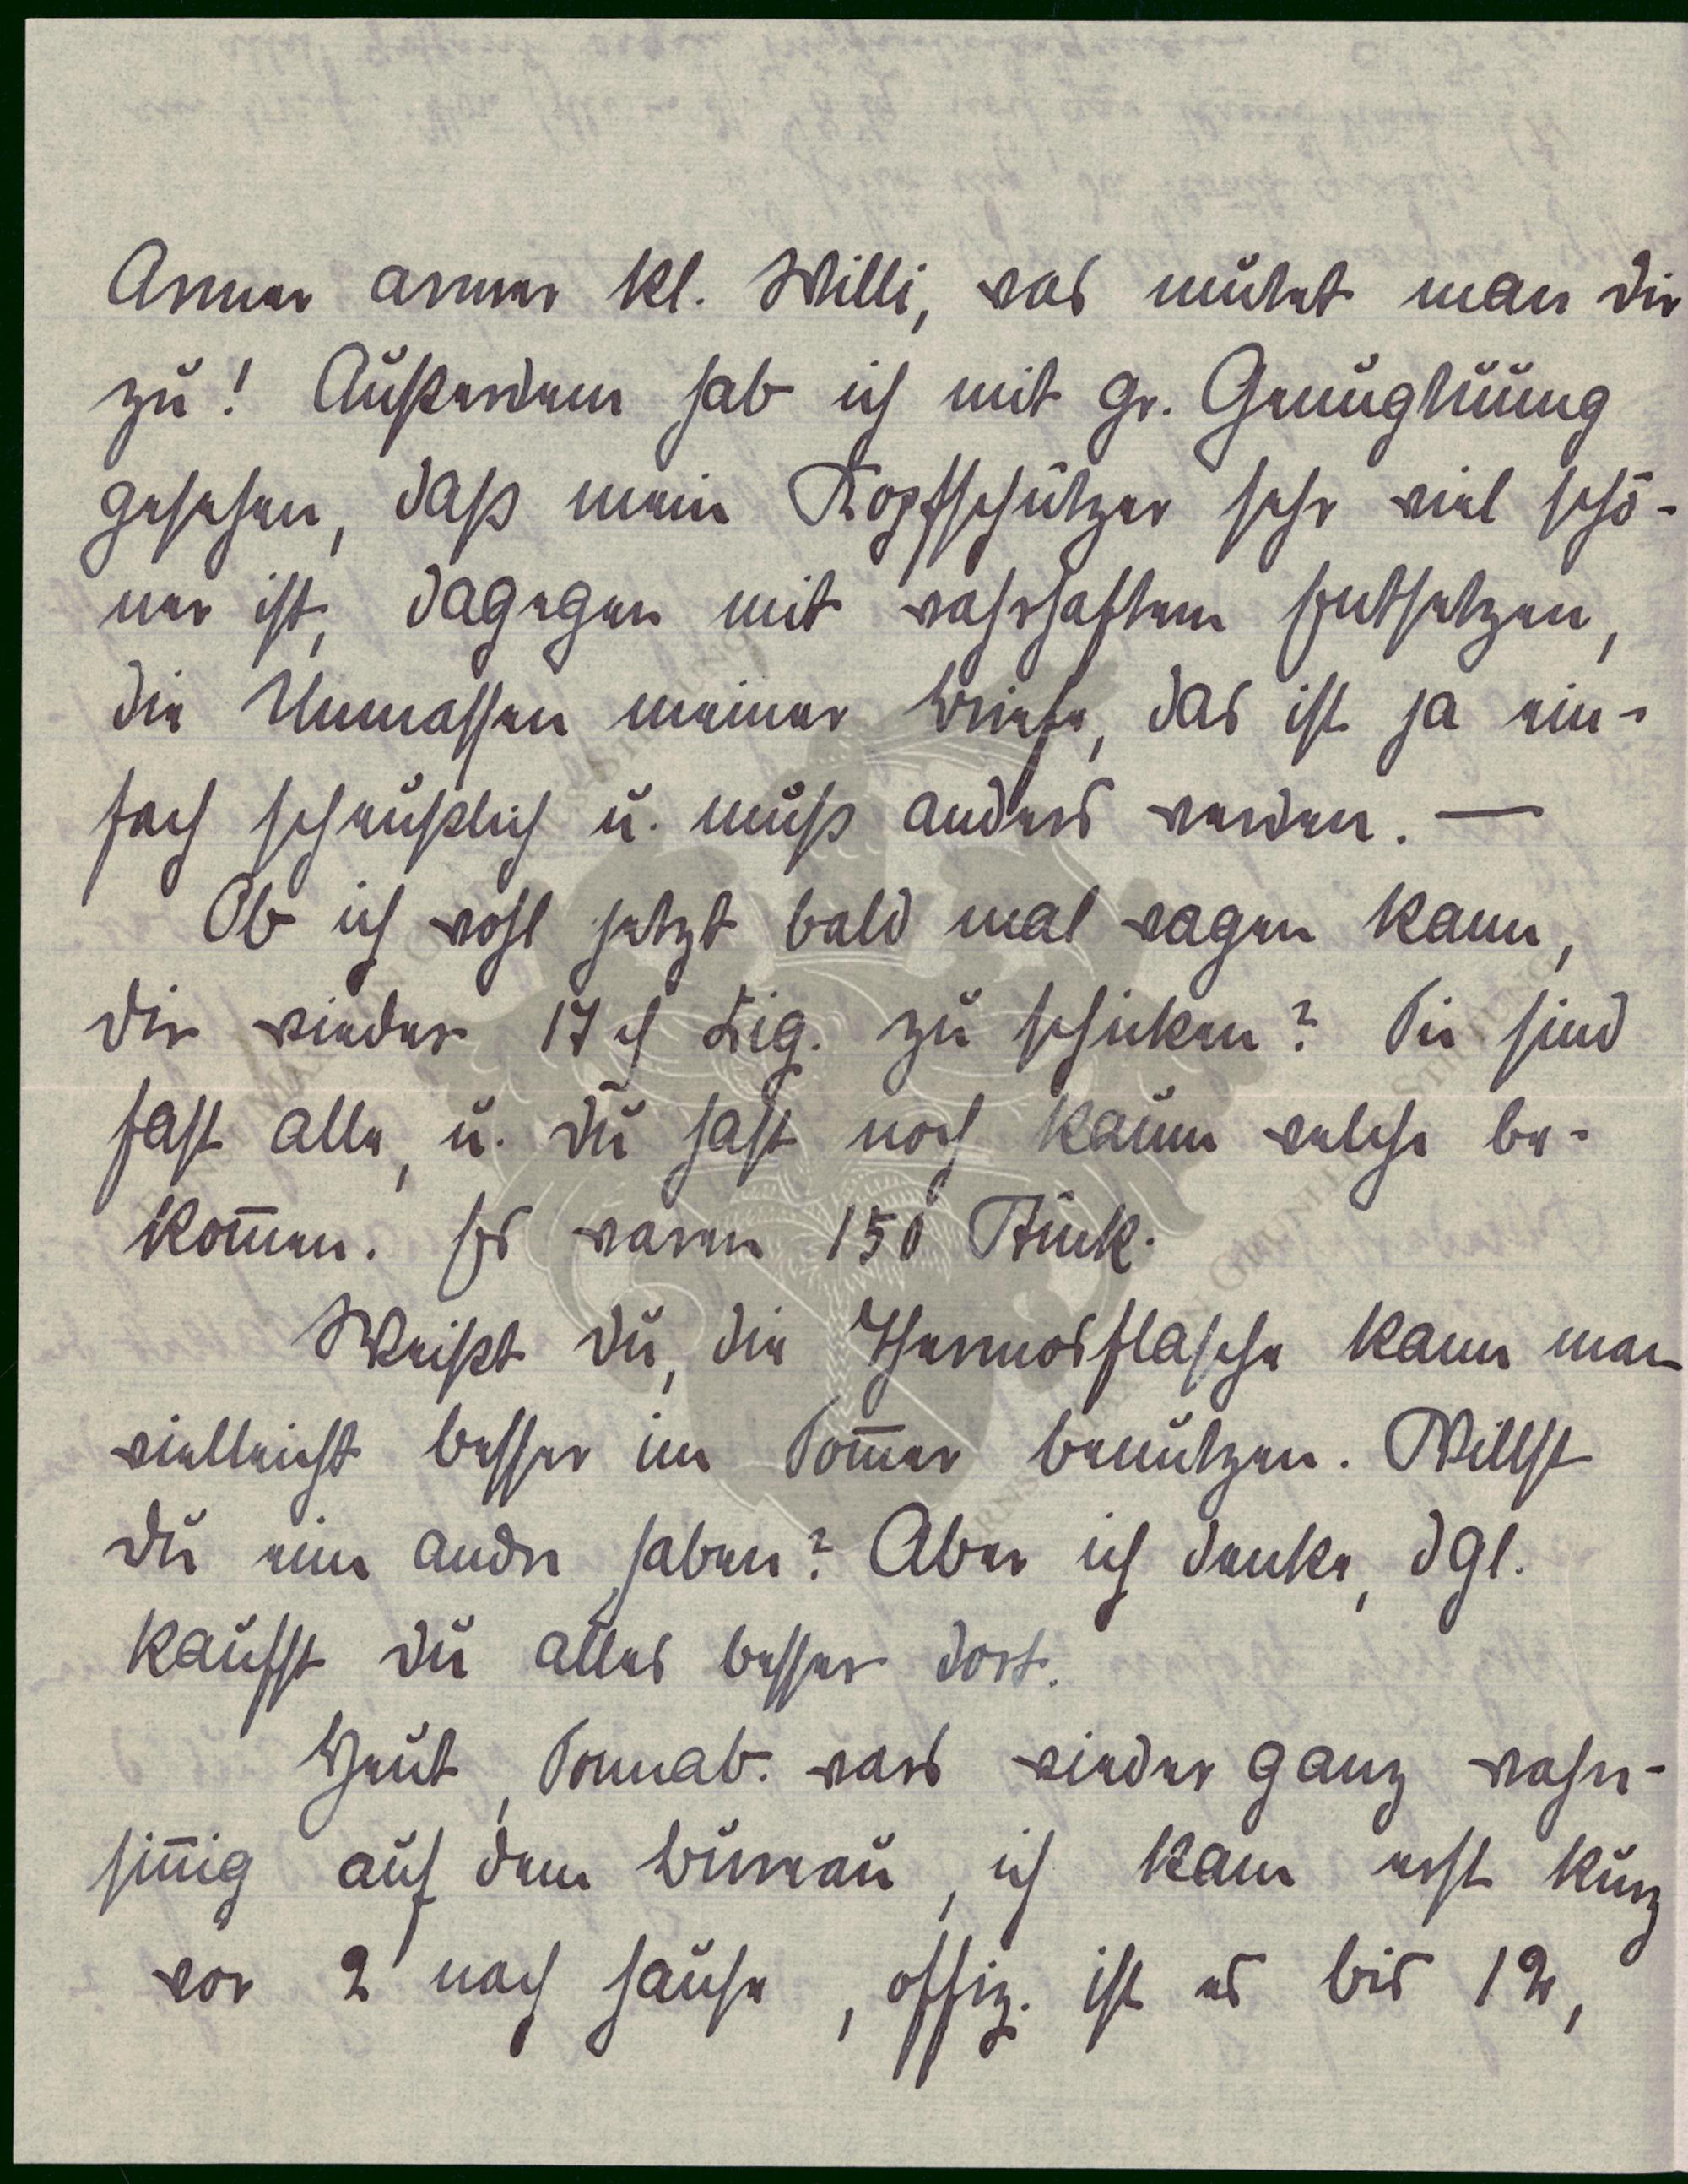 Armer armer kl. Willi, was mutet man dir
zu! Außerdem hab ich mit gr. Genugtuung
gesehen, daß mein Kopfschützer sehr viel schö-
ner ist, dagegen mit wahrhaftem Entsetzen,
die Unmassen meiner Briefe, das ist ja ein-
fach scheußlich u. muß anders werden. —
Ob ich wohl jetzt bald mal wagen kann,
dir wieder 17 ch Zig. zu schicken? Sie sind
fast alle, u. du hast noch kaum welche be-
kom̅en. Es waren 150 Stück.
Weißt du, die Thermosflasche kann man
vielleicht besser im Som̅er benützen. Willst
du eine andre haben? Aber ich denke, dgl.
kaufst du alles besser dort.
Heut, Sonnab. wars wieder ganz wahn-
sin̅ig auf dem Bureau, ich kam erst kurz
vor 2 nach hause, offiz. ist es bis 12,